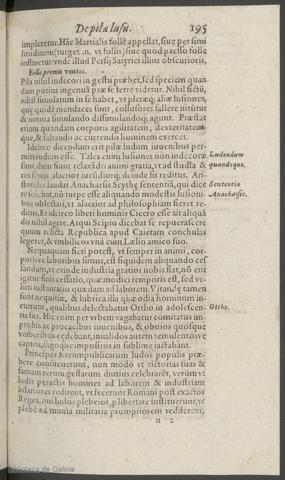 De pilæ lusu. 195
impleretur. Hãc Martialis follẽ appellat, siue per simi
litudinem (turget .n. vt follis) siue quod presso folle
inflaretur: vnde illud Persij Satyrici illius obscurioris,
Folle premis ventos.
Pila nihil indecori in gestu præbet, sed speciem quan
dam potius ingenuā præ se ferre videtur. Nihil fictũ,
nihil simulatum in se habet, vt pleræq; aliæ lusiones,
quę quidē mendaces sunt, collusores fallere nituntur
& omnia simulando dissimulandoq; agunt. Præstat
etiam quandam corporis agilitatem, dexteritatem-
que, & saltando ac currendo hominem exercet.
Idcirco dicendum erit pilæ ludum iuuenibus per-
mittendum esse. Tales enim lusiones non indecoræ
sunt, dum fiunt relaxādi animi gratia, vt ad studia &
res serias alacrior iucūdiorq; deinde sit reditus. Ari-
stoteles laudat Anacharsis Scythę sententiā, qui dice
re solebat, nō turpe esse aliquando modestis lusioni-
bus oblectari, vt alacrior ad philosophiam fieret re-
ditus. Et idcirco liberi hominis Cicero esse ait aliquā
do nihil agere. Atqui Scipio dicebat se repuerascere
quum relicta Republica apud Caietam conchulas
legeret, & vmbilicos vnà cum Lælio amico suo.
Ludendum
quandoque.
Sententia
Anacharsis.
Nequaquam fieri potest, vt semper in animi, cor-
porisve laboribus simus, est siquidem aliquando ces
sandum, vt exinde industria gratior nobis fiat, nō erit
igitur finis cessatio, quæ modici temporis est, sed ve-
luti instauratio quædam ad laborem. Vitandę tamen
sunt nequitiæ, & lubrica illa quæ odia hominum in-
currunt, qualibus delectabatur Ortho in adolescen-
tia sua. Hic enim per vrbem vagabatur comitatus im-
probis ac procacibus iuuenibus, & obuios quosque
verberibus cędebant, inualidos autem temulentosve
captos, sagoque impositos in sublime iactabant.
Ortho.
Principes Rerumpublicarum ludos populis præ-
bere consueuerunt, non modò vt victorias suas &
famam rerum gestarum diutius celebrarēt, verùm vt
ludis peractis homines ad laborem & industriam
hilariores redirent, vt fecerunt Romani post exactos
Reges, qui ludos plebeios, p libertate instituerunt, vt
plebē ad munia militaria promptiorem redderent,
n 2
Biblioteca de Galicia